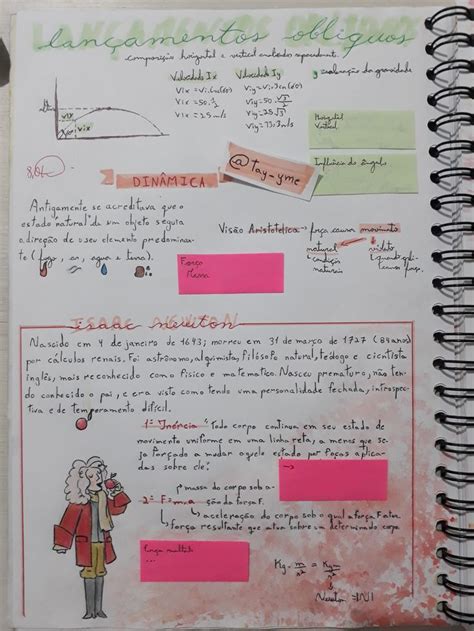 lançamentos oblíquos
composição horizontal e vertical
Velocidade Ix
Vix = Vi.
Vix = 50.½
Vix = 25 m/s
Velocidade Iy
Viy = Vi.
Viy = 50.√3/2
Viy = 25√3
g = aceleração da gravidade
Horizontal
Vertical
Influência do ângulo
vix
DINÂMICA
@Tay-yme
Antigamente se acreditava que o
estado natural de um objeto seguia
a direção de seu elemento predominan-
te (fogo, ar, água e terra).
Visão Aristotélica → força causa movimento
natural
violento
↳ condições
naturais
causa força
Força
Massa
ISAAC NEWTON
Isaac Newton
Nascido em 4 de janeiro de 1643; morreu em 31 de março de 1727 (84 anos)
por cálculos renais. Foi astrônomo, alquimista, filósofo natural, teólogo e cientista
inglês, mais reconhecido como físico e matemático. Nasceu prematuro, não ten-
do conhecido o pai, e era visto como tendo uma personalidade fechada, introspec-
tiva e de temperamento difícil.
1ª Inércia "Todo corpo continua em seu estado de
movimento uniforme em uma linha reta, a menos que se-
ja forçado a mudar aquele estado por forças aplica-
das sobre ele".
→
massa do corpo sob a-
2ª F=m.a ção da força F.
↳ aceleração do corpo sob o qual a força F atua
força resultante que atua sobre um determinado corpo
Força
Kg . m/s² = Kgm/s²
Newton = |N|